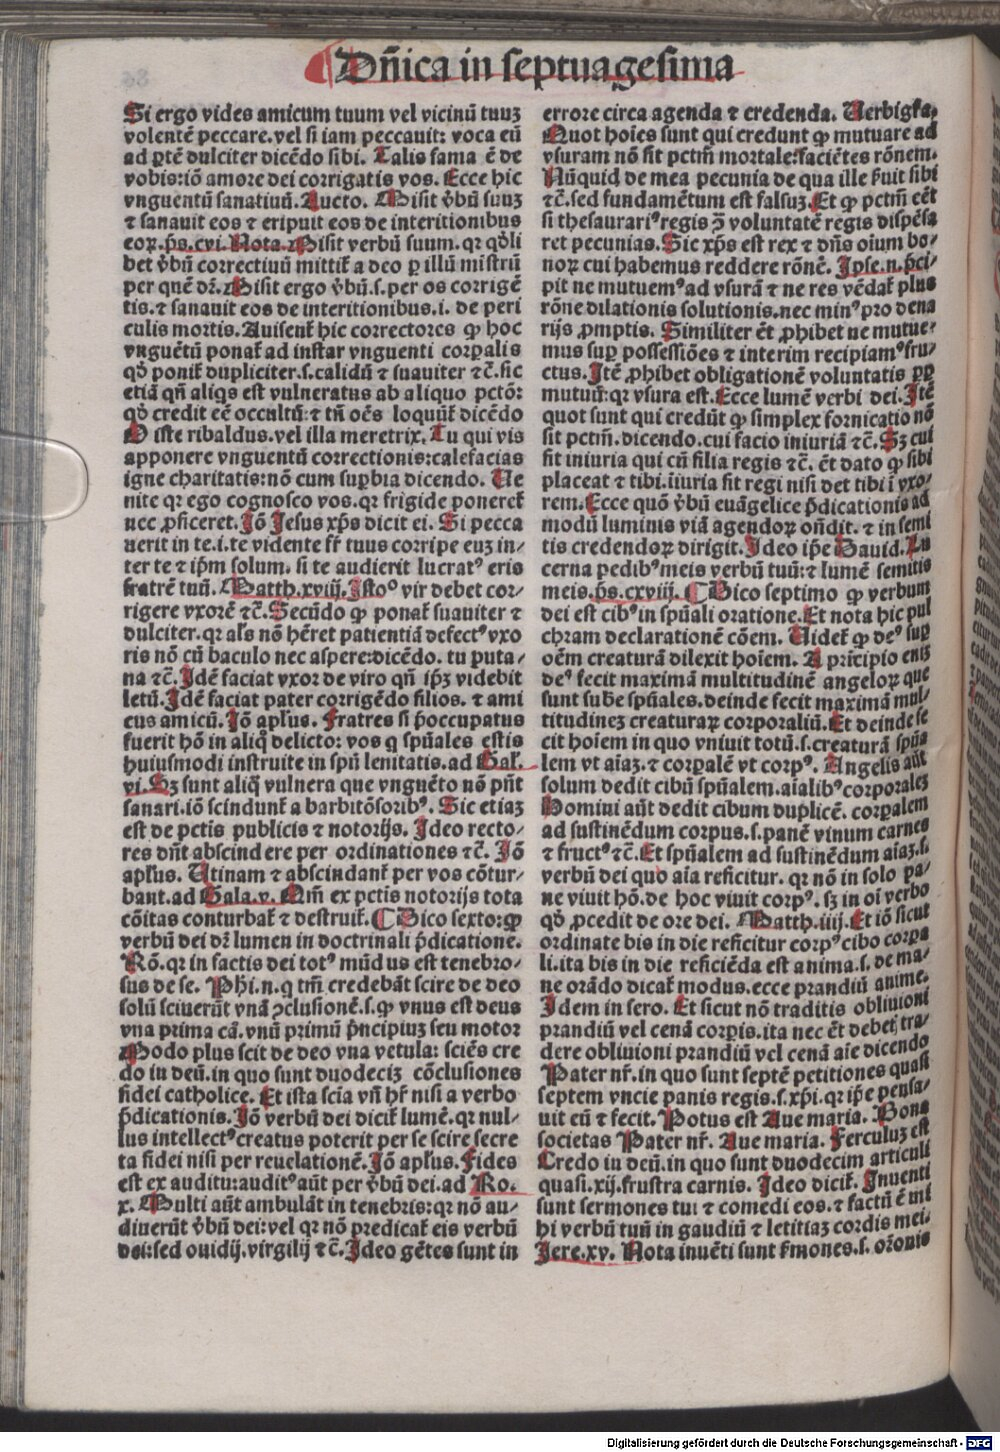 Dñica in septuagesima
Si ergo vides amicum tuum vel vicinū tuuz
volentē peccare.vel si iam peccauit: voca eū
ad ꝑtē dulciter dicēdo sibi. Talis fama ē de
vobis:iō amore dei corrigatis vos. Ecce hic
vnguentū sanatiuū.Aucto. Misit v̄bū suuz
⁊ sanauit eos ⁊ eripuit eos de interitionibus
eoꝝ.p̄s.cvi. Nota.Misit verbū suum.qꝛ qōli
bet v̄bū correctiuū mittit̄ a deo ꝑ illū mīstrū
per quē dꝛ.Misit ergo v̄bū.s.per os corrigē
tis.⁊ sanauit eos de interitionibus.i. de peri
culis mortis. Auisent̄ hic correctores ꝙ hoc
vnguētū ponat̄ ad instar vnguenti corꝑalis
qō ponit̄ dupliciter.s.calidū ⁊ suauiter ⁊c̄.sic
etiā qn̄ aliqs est vulneratus ab aliquo pctō:
qō credit eē occultū:⁊ tn̄ oēs loquūt̄ dicēdo
O iste ribaldus.vel illa meretrix. Tu qui vis
apponere vnguentū correctionis:calefacias
igne charitatis:nō cum suꝑbia dicendo. Ue
nite qꝛ ego cognosco vos.qꝛ frigide poneret̄
nec ꝓficeret.Iō Jesus xp̄s dicit ei. Si pecca
uerit in te.i.te vidente fr̄ tuus corripe euz in-
ter te ⁊ ip̄m solum. si te audierit lucrat⁹ eris
fratrē tuū. Matth.xviij.Isto⁰ vir debet cor-
rigere vxorē ⁊c̄.Secūdo ꝙ ponat̄ suauiter ⁊
dulciter.qꝛ al̄s nō hēret patientiā defect⁹ vxo
ris nō cū baculo nec aspere:dicēdo. tu puta-
na ⁊c̄.Idē faciat vxor de viro qn̄ ip̄z videbit
letū. Idē faciat pater corrigēdo filios. ⁊ ami
cus amicū. Iō apl̄us. Fratres si p̄occupatus
fuerit hō in aliq̄ delicto: vos q̄ spūales estis
huiusmodi instruite in spū lenitatis.ad Gal̄.
vi.Sz sunt aliq̄ vulnera que vnguēto nō pn̄t
sanari.iō scindunt̄ a barbitōsorib⁹. Sic etiaz
est de pctis publicis ⁊ notorijs. Ideo recto-
res dn̄t abscindere per ordinationes ⁊c̄. Iō
apl̄us. Utinam ⁊ abscindant̄ per vos cōtur-
bant.ad Gala.v. Qm̄ ex pctis notorijs tota
cōitas conturbat̄ ⁊ destruit̄. ¶ Dico sexto:ꝙ
verbū dei dꝛ lumen in doctrinali p̄dicatione.
Rō.qꝛ in factis dei tot⁹ mūdus est tenebro-
sus de se. Phi.n.q̄ tm̄ credebāt scire de deo
solū sciuerūt vnā ꝯclusionē.s.ꝙ vnus est deus
vna prima cā.vnū primū p̄ncipiuz seu motor
Modo plus scit de deo vna vetula: sciēs cre
do in deū.in quo sunt duodeciz cōclusiones
fidei catholice. Et ista scīa vn̄ hr̄ nisi a verbo
p̄dicationis.Iō verbū dei dicit̄ lumē.qꝛ nul-
lus intellect⁹creatus poterit per se scire secre
ta fidei nisi per reuelationē.Iō apl̄us.Fides
est ex auditu:audit⁹aūt per v̄bū dei.ad Ro.
x. Multi aūt ambulāt in tenebris:qꝛ nō au-
diuerūt v̄bū dei:vel qꝛ nō predicat̄ eis verbū
dei:sed ouidij.virgilij ⁊c̄.Ideo gētes sunt in
errore circa agenda ⁊ credenda. Uerbigr̄a.
Quot hoīes sunt qui credunt ꝙ mutuare ad
vsuram nō sit pctm̄ mortale:faciētes rōnem.
Nūquid de mea pecunia de qua ille s̄uit sibi
⁊c̄.sed fundamētum est falsuz.Et ꝙ pctm̄ eēt
si thesaurari⁹regis ꝯ̄ voluntatē regis dispēsa
ret pecunias.Sic xp̄s est rex ⁊ dn̄s oium bo-
noꝝ cui habemus reddere rōnē. Ipse.n.p̄ci-
pit ne mutuem⁹ad vsurā ⁊ ne res vēdat̄ plus
rōne dilationis solutionis.nec min⁹pro dena
rijs ꝓmptis. Similiter ēt ꝓhibet ne mutue-
mus suꝑ possessiōes ⁊ interim recipiam⁹fru-
ctus.Itē ꝓhibet obligationē voluntatis ꝓꝑ
mutuū:qꝛ vsura est.Ecce lumē verbi dei.Itē
quot sunt qui credūt ꝙ simplex fornicatio nō
sit pctm̄.dicendo.cui facio iniuriā ⁊c̄.Sz cui
fit iniuria qui cū filia regis ⁊c̄. ēt dato ꝙ sibi
placeat ⁊ tibi.iiuria fit regi nisi det tibi ī vxo-
rem.Ecce quō v̄bū euāgelice p̄dicationis ad
modū luminis viā agendoꝝ on̄dit. ⁊ in semi
tis credendoꝝ dirigit.Ideo ip̄e Dauid.Lu
cerna pedib⁹meis verbū tuū:⁊ lumē semitis
meis.p̄s.cxviij. ¶ Dico septimo ꝙ verbum
dei est cib⁹in spūali oratione.Et nota hic pul
chram declarationē cōem. Uidet̄ ꝙ de⁹ suꝑ
oēm creaturā dilexit hoīem. A prīcipio eniz
de⁹ fecit maximā multitudinē angeloꝝ que
sunt sub̄e spūales.deinde fecit maximā mul-
titudinez creaturaꝝ corporaliū.Et deinde fe
cit hoīem in quo vniuit totū.s.creaturā spūa
lem vt aīaz.⁊ corꝑalē vt corp⁹. Angelis aūt
solum dedit cibū spūalem.aīalib⁹corporales
Homini aūt dedit cibum duplicē. corꝑalem
ad sustinēdum corpus.s.panē vinum carnes
⁊ fruct⁹⁊c̄.Et spūalem ad sustinēdum aīaz.s.
verbū dei quo aīa reficitur. qꝛ nō in solo pa-
ne viuit hō.de hoc viuit corp⁹.sz in oī verbo
qō ꝓcedit de ore dei. Matth.iiij.Et iō sicut
ordinate bis in die reficitur corp⁹cibo corpa
li.ita bis in die reficiēda est anima.s. de ma-
ne orādo dicat̄ modus.ecce prandiū anime.
Idem in sero. Et sicut nō traditis obliuioni
prandiū vel cenā corꝑis.ita nec ēt debetj tra-
dere obliuioni prandiū vel cenā aīe dicendo
Pater nr̄.in quo sunt septē petitiones quasi
septem vncie panis regis.s.xp̄i.qꝛ ip̄e pensa-
uit eū ⁊ fecit. Potus est Aue maria. Bona
societas Pater nr̄. Aue maria. Ferculuz est
Credo in deū.in quo sunt duodecim articuli
quasi.xij.frustra carnis. Ideo dicit̄. Inuenti
sunt sermones tui ⁊ comedi eos.⁊ factū ē mi
hi verbū tuū in gaudiū ⁊ letitiaz cordis mei.
Jere.xv. Nota inuēti sunt s̄mones.s. orōnis
Digitalisierung gefördert durch die Deutsche Forschungsgemeinschaft - DFG